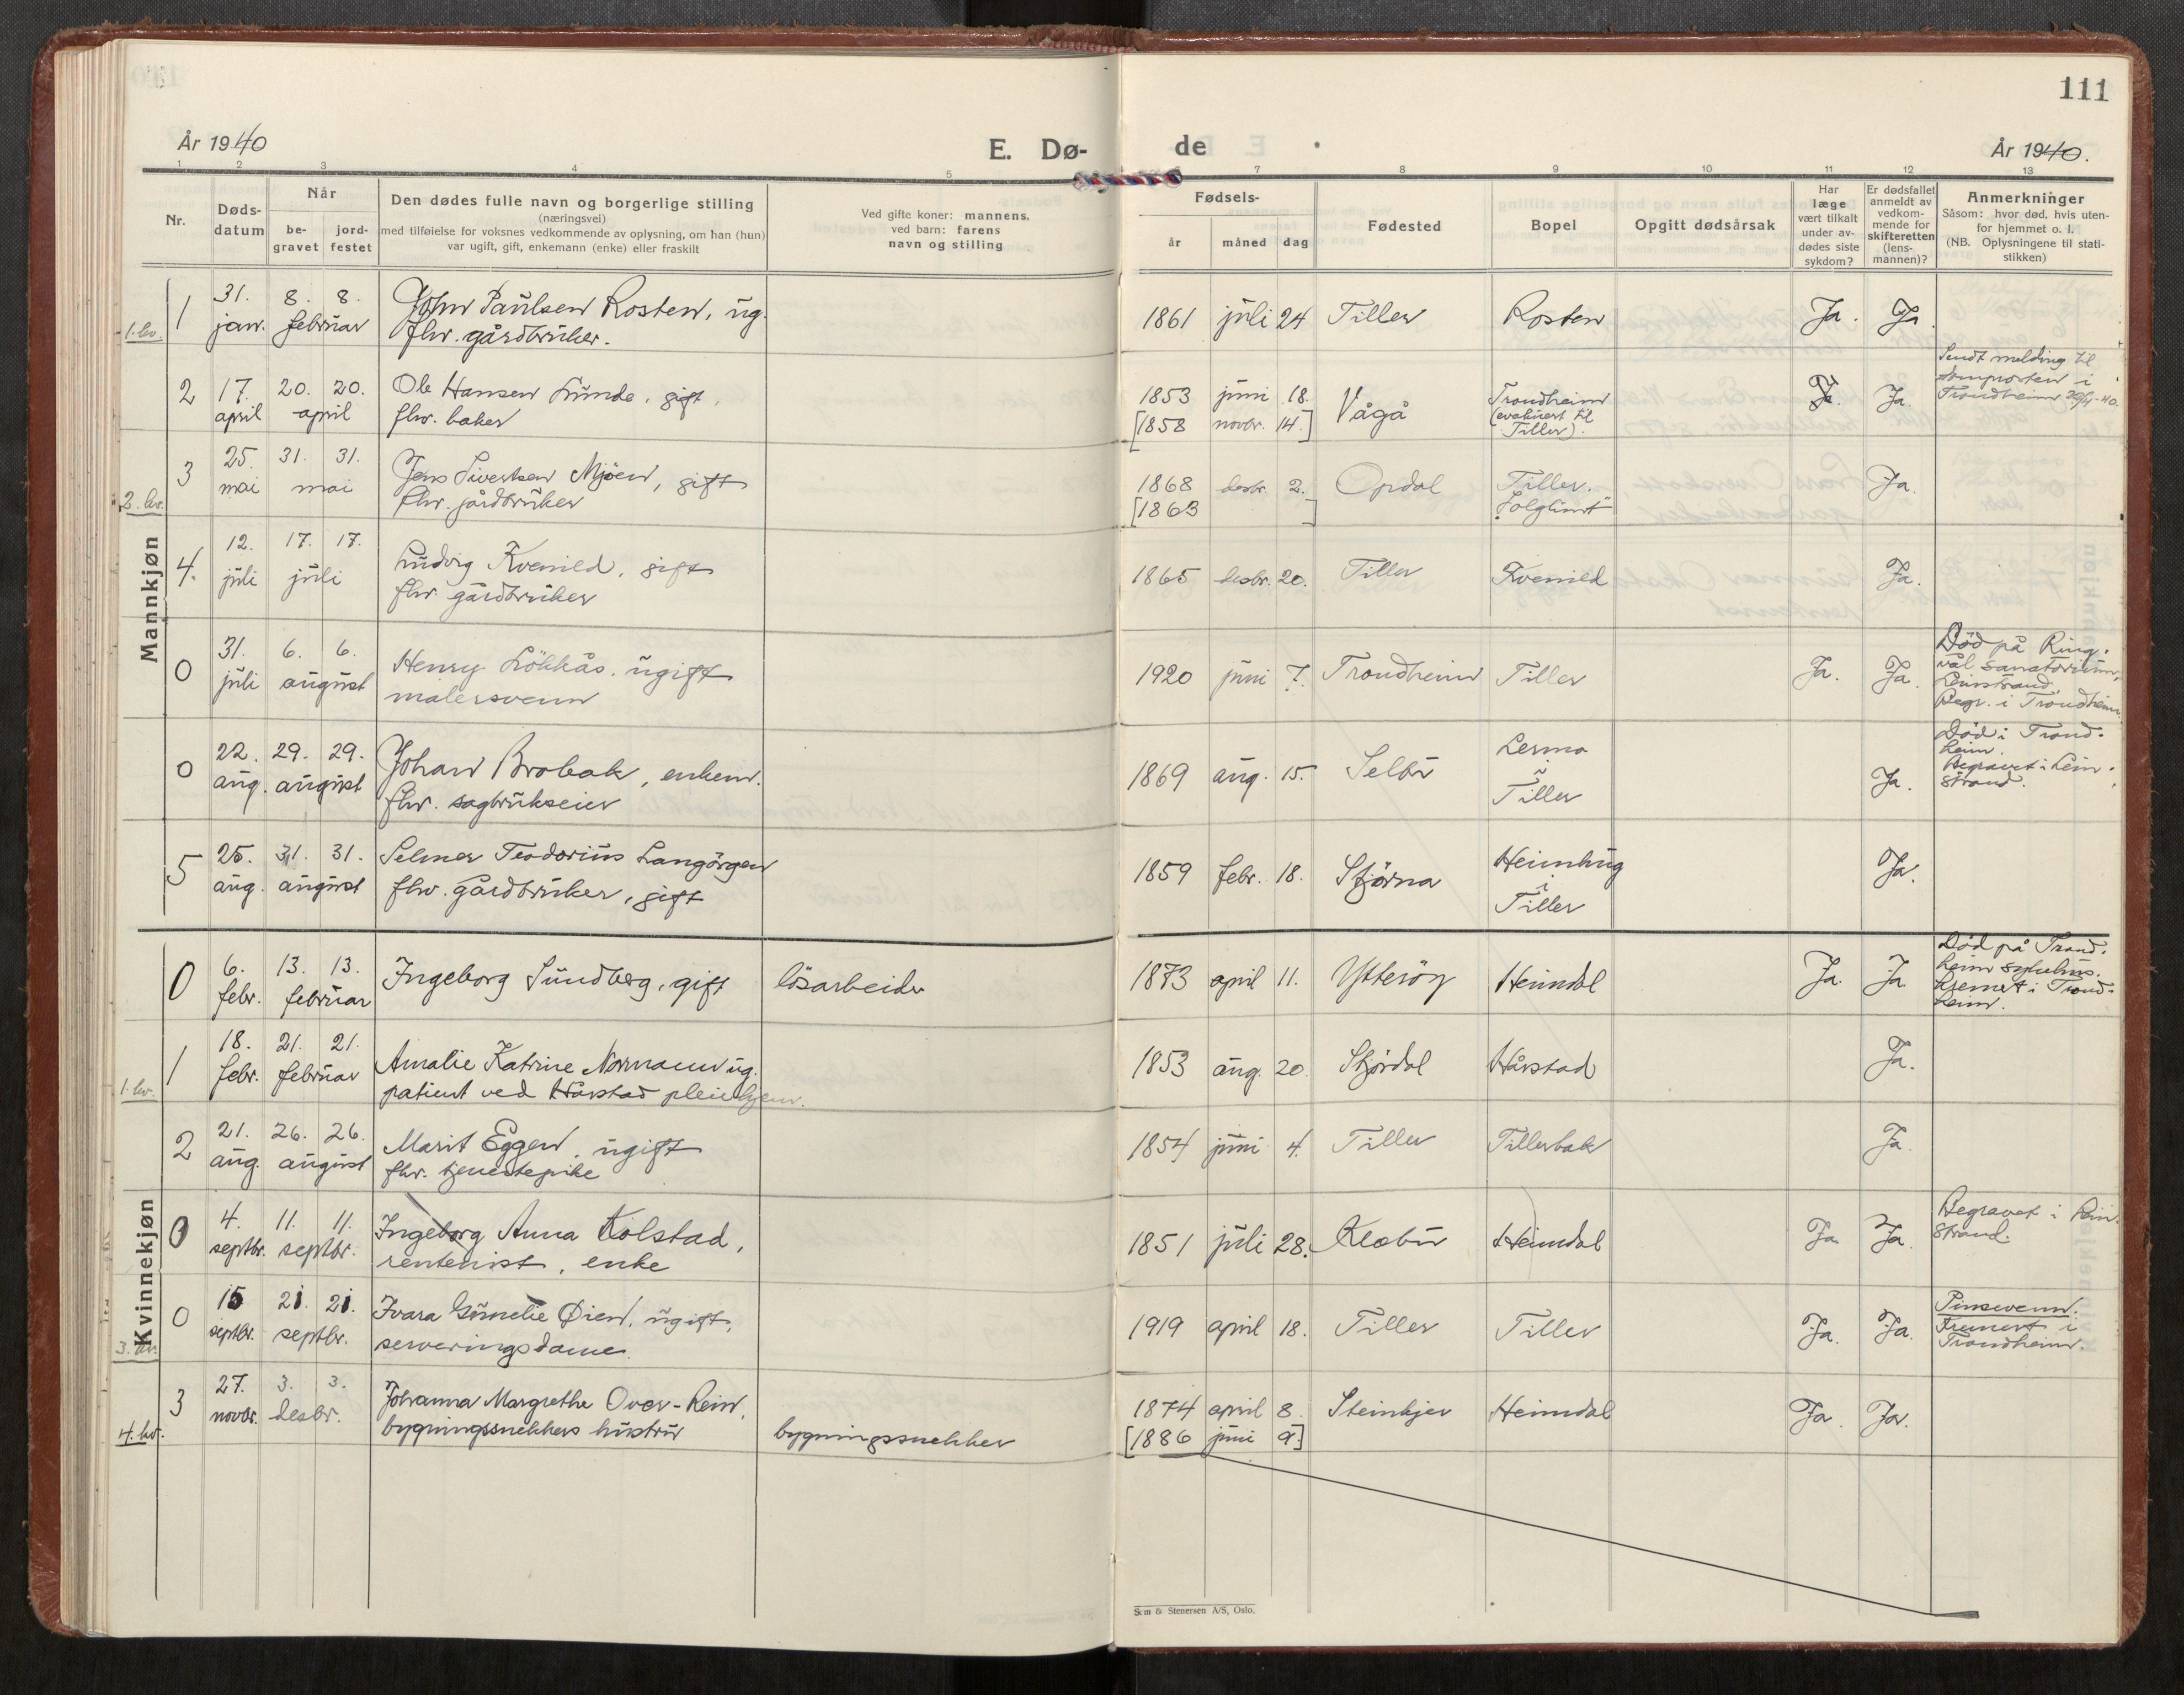 111
År 1940
E. Dø-
de
År 1940.
1 2 3 4 5 7 8 9 10 11 12 13
Nr.
Døds-
datum
Når
be-
gravet
jord-
festet
Den dødes fulle navn og borgerlige stilling
(næringsvei)
med tilføielse for voksnes vedkommende av oplysning, om han (hun)
var ugift, gift, enkemann (enke) eller fraskilt
Ved gifte koner: mannens.
ved barn: farens
navn og stilling
Fødsels-
år måned dag
Fødested
Bopel
Opgitt dødsårsak
Har
læge
vært tilkalt
under av-
dødes siste
sykdom?
Er dødsfallet
anmeldt av
vedkom-
mende for
skifteretten
(lens-
mannen)?
Anmerkninger
Såsom: hvor død, hvis uten-
for hjemmet o. l.
(NB. Oplysningene til stati-
stikken)
Mannkjøn
1. kv.
1 31. jan. 8. 8. februar John Paulsen Rosten, ug. 1861 juli 24 Tiller Rosten Ja. Ja.
fhv. gårdbruker.
2 17. april 20. 20. april Ole Hansen Lunde, gift, 1853 juni 18. Vågå Trondheim Ja. Ja. Sendt melding til
fhv. baker [1858 novbr. 14.] (evakuert til domprosten i
Tiller). Trondheim 29/4-40.
2. kv.
3 25. mai 31. 31. mai Jens Sivertsen Mjøen, gift 1868 desbr. 2. Opdal Tiller. Ja.
fhv. gårdbruker [1863 ] "Solglimt"
4. 12. juli 17. 17. juli Ludvig Kvenild, gift 1865 desbr. 20. Tiller Kvenild Ja.
fhv. gårdbruker
0 31. juli 6. 6. august Henry Løkkås, ugift 1920 juni 7. Trondheim Tiller Ja. Ja. Død på Ring-
malersvenn vål sanatorium,
Leinstrand.
Begr. i Trondheim.
0 22. aug. 29. 29. august Johan Brobak, enkem. 1869 aug. 15. Selbu Lerma Ja. Død i Trond-
fhv. sagbrukseier i heim.
Tiller Begravet i Lein-
strand.
5 25. aug. 31. 31. august Selmer Teodorius Langørgen 1859 febr. 18. Stjørna Heimhug Ja.
fhv. gårdbruker, gift i
Tiller
Kvinnekjøn
0 6. febr. 13. 13. februar Ingeborg Sundberg, gift løsarbeider 1873 april 11. Ytterøy Heimdal Ja. Ja. Død på Trond-
heim sykehus.
Kremert i Trond-
heim.
1. kv.
1 18. febr. 21. 21. februar Amalie Katrine Normann ug. 1853 aug. 20. Stjørdal Hårstad Ja.
patient ved Hårstad pleiehjem.
2 21. aug. 26. 26. august Marit Eggen, ugift 1854 juni 4. Tiller Tillerbak Ja.
fhv. tjenestepike
0 4. septbr. 11. 11. septbr. Ingeborg Anna Kolstad, 1851 juli 28. Klæbu Heimdal Ja Ja. Begravet i Lein-
rentenist, enke strand.
3. kv.
0 15 septbr. 21. 21. septbr. Ivara Gunelie Øien, ugift, 1919 april 18. Tiller Tiller Ja. Ja. Pinsevenn.
serveringsdame. Kremert i
Trondheim.
4. kv.
3 27. novbr. 3. 3. desbr. Johanna Margrethe Over-Rein, 1874 april 8. Steinkjer Heimdal Ja. Ja.
bygningssnekkers hustru bygningssnekker [1886 juni 9.]
Sem & Stenersen A/S, Oslo.